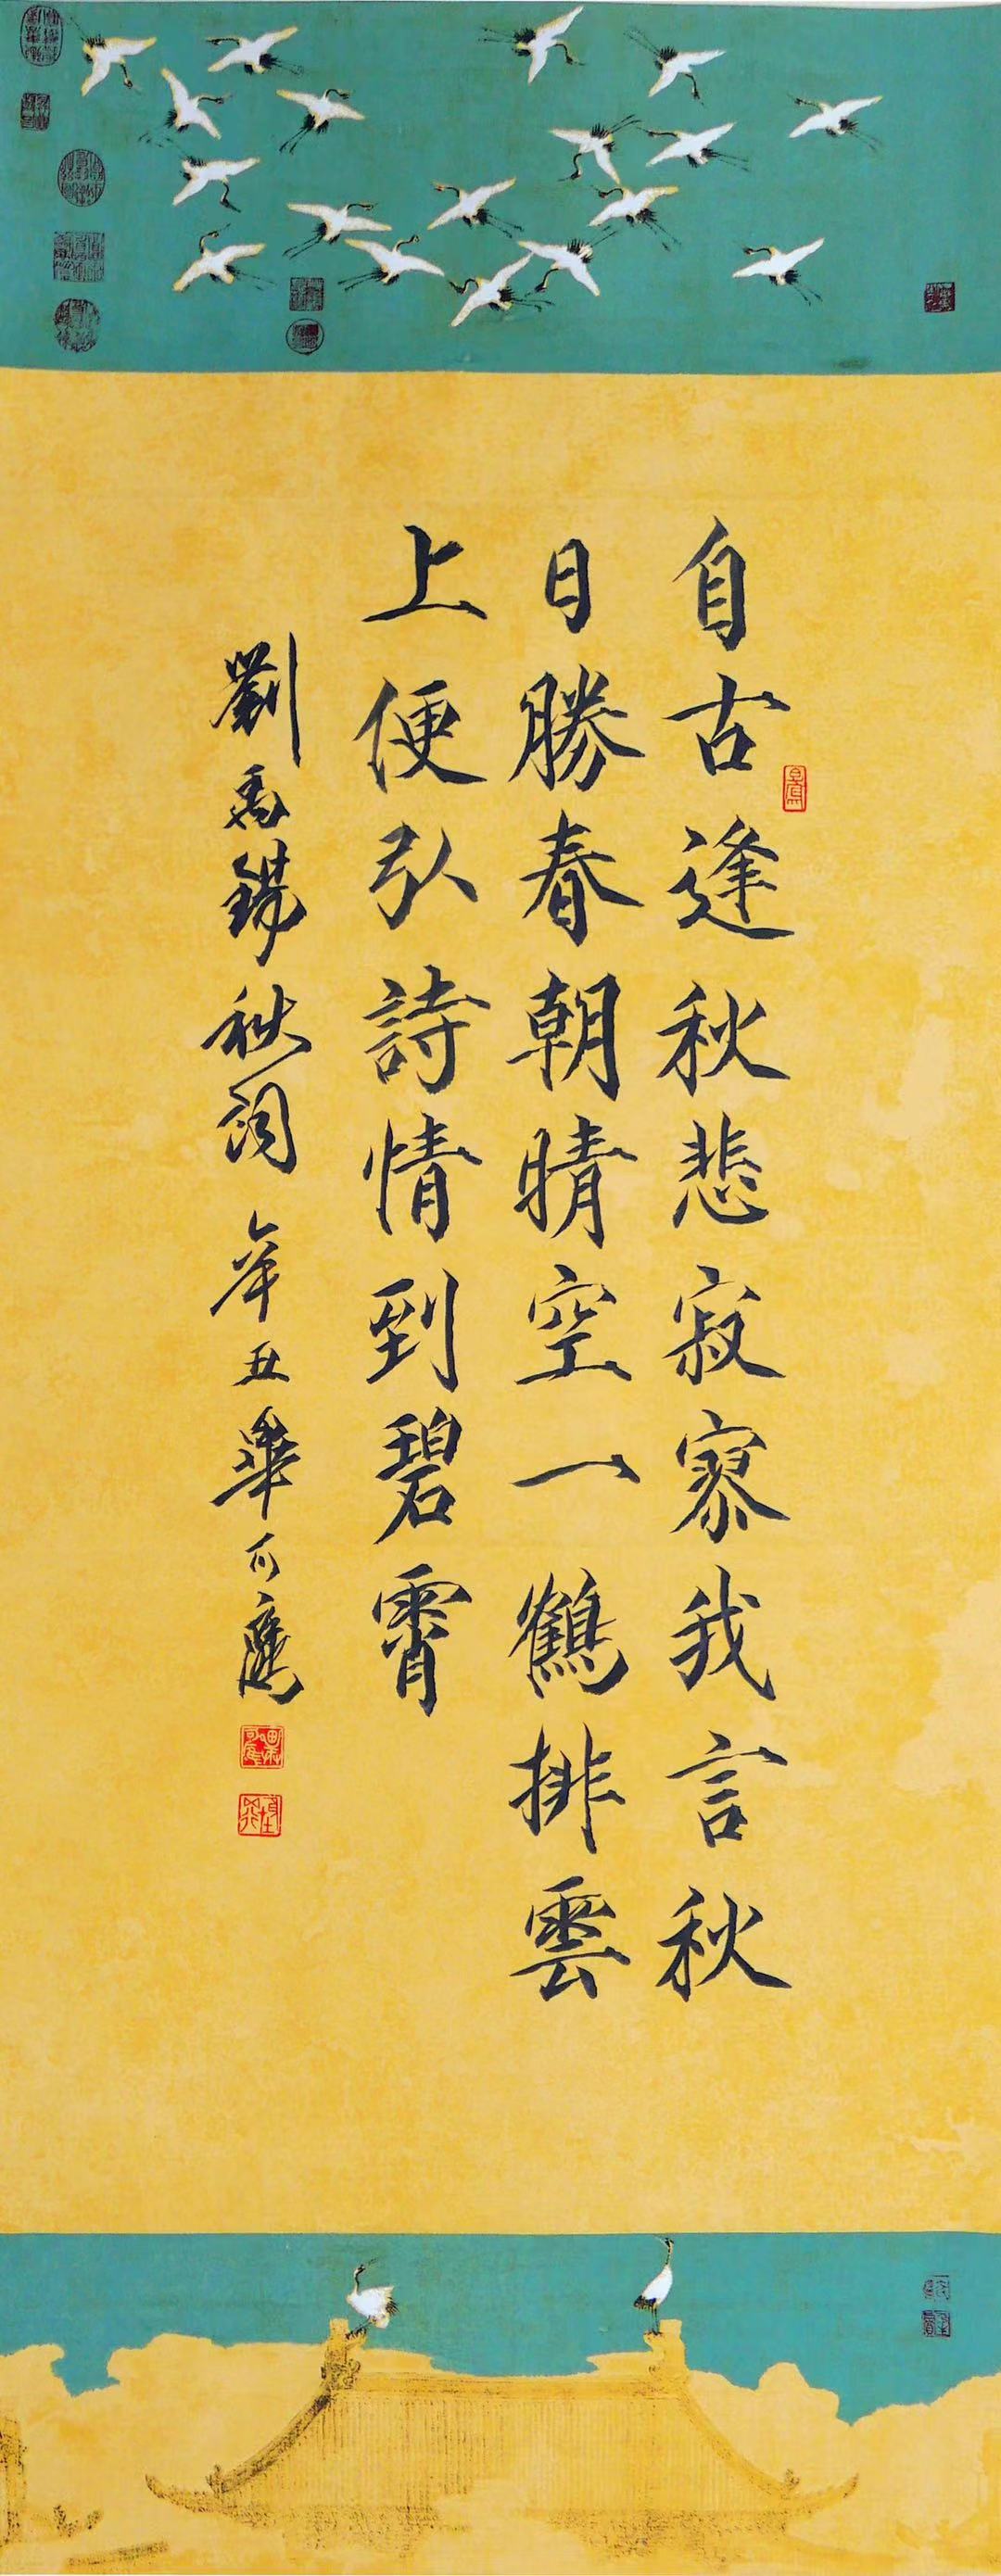 自古逢秋悲寂寥我言秋
日勝春朝晴空一鶴排雲
上便引詩情到碧霄
劉禹錫秋詞 辛丑畢可